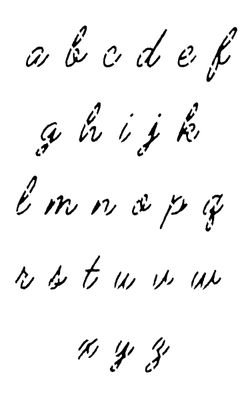 a b c d e f
g h i j k
l m n o p q
r s t u v w
x y z